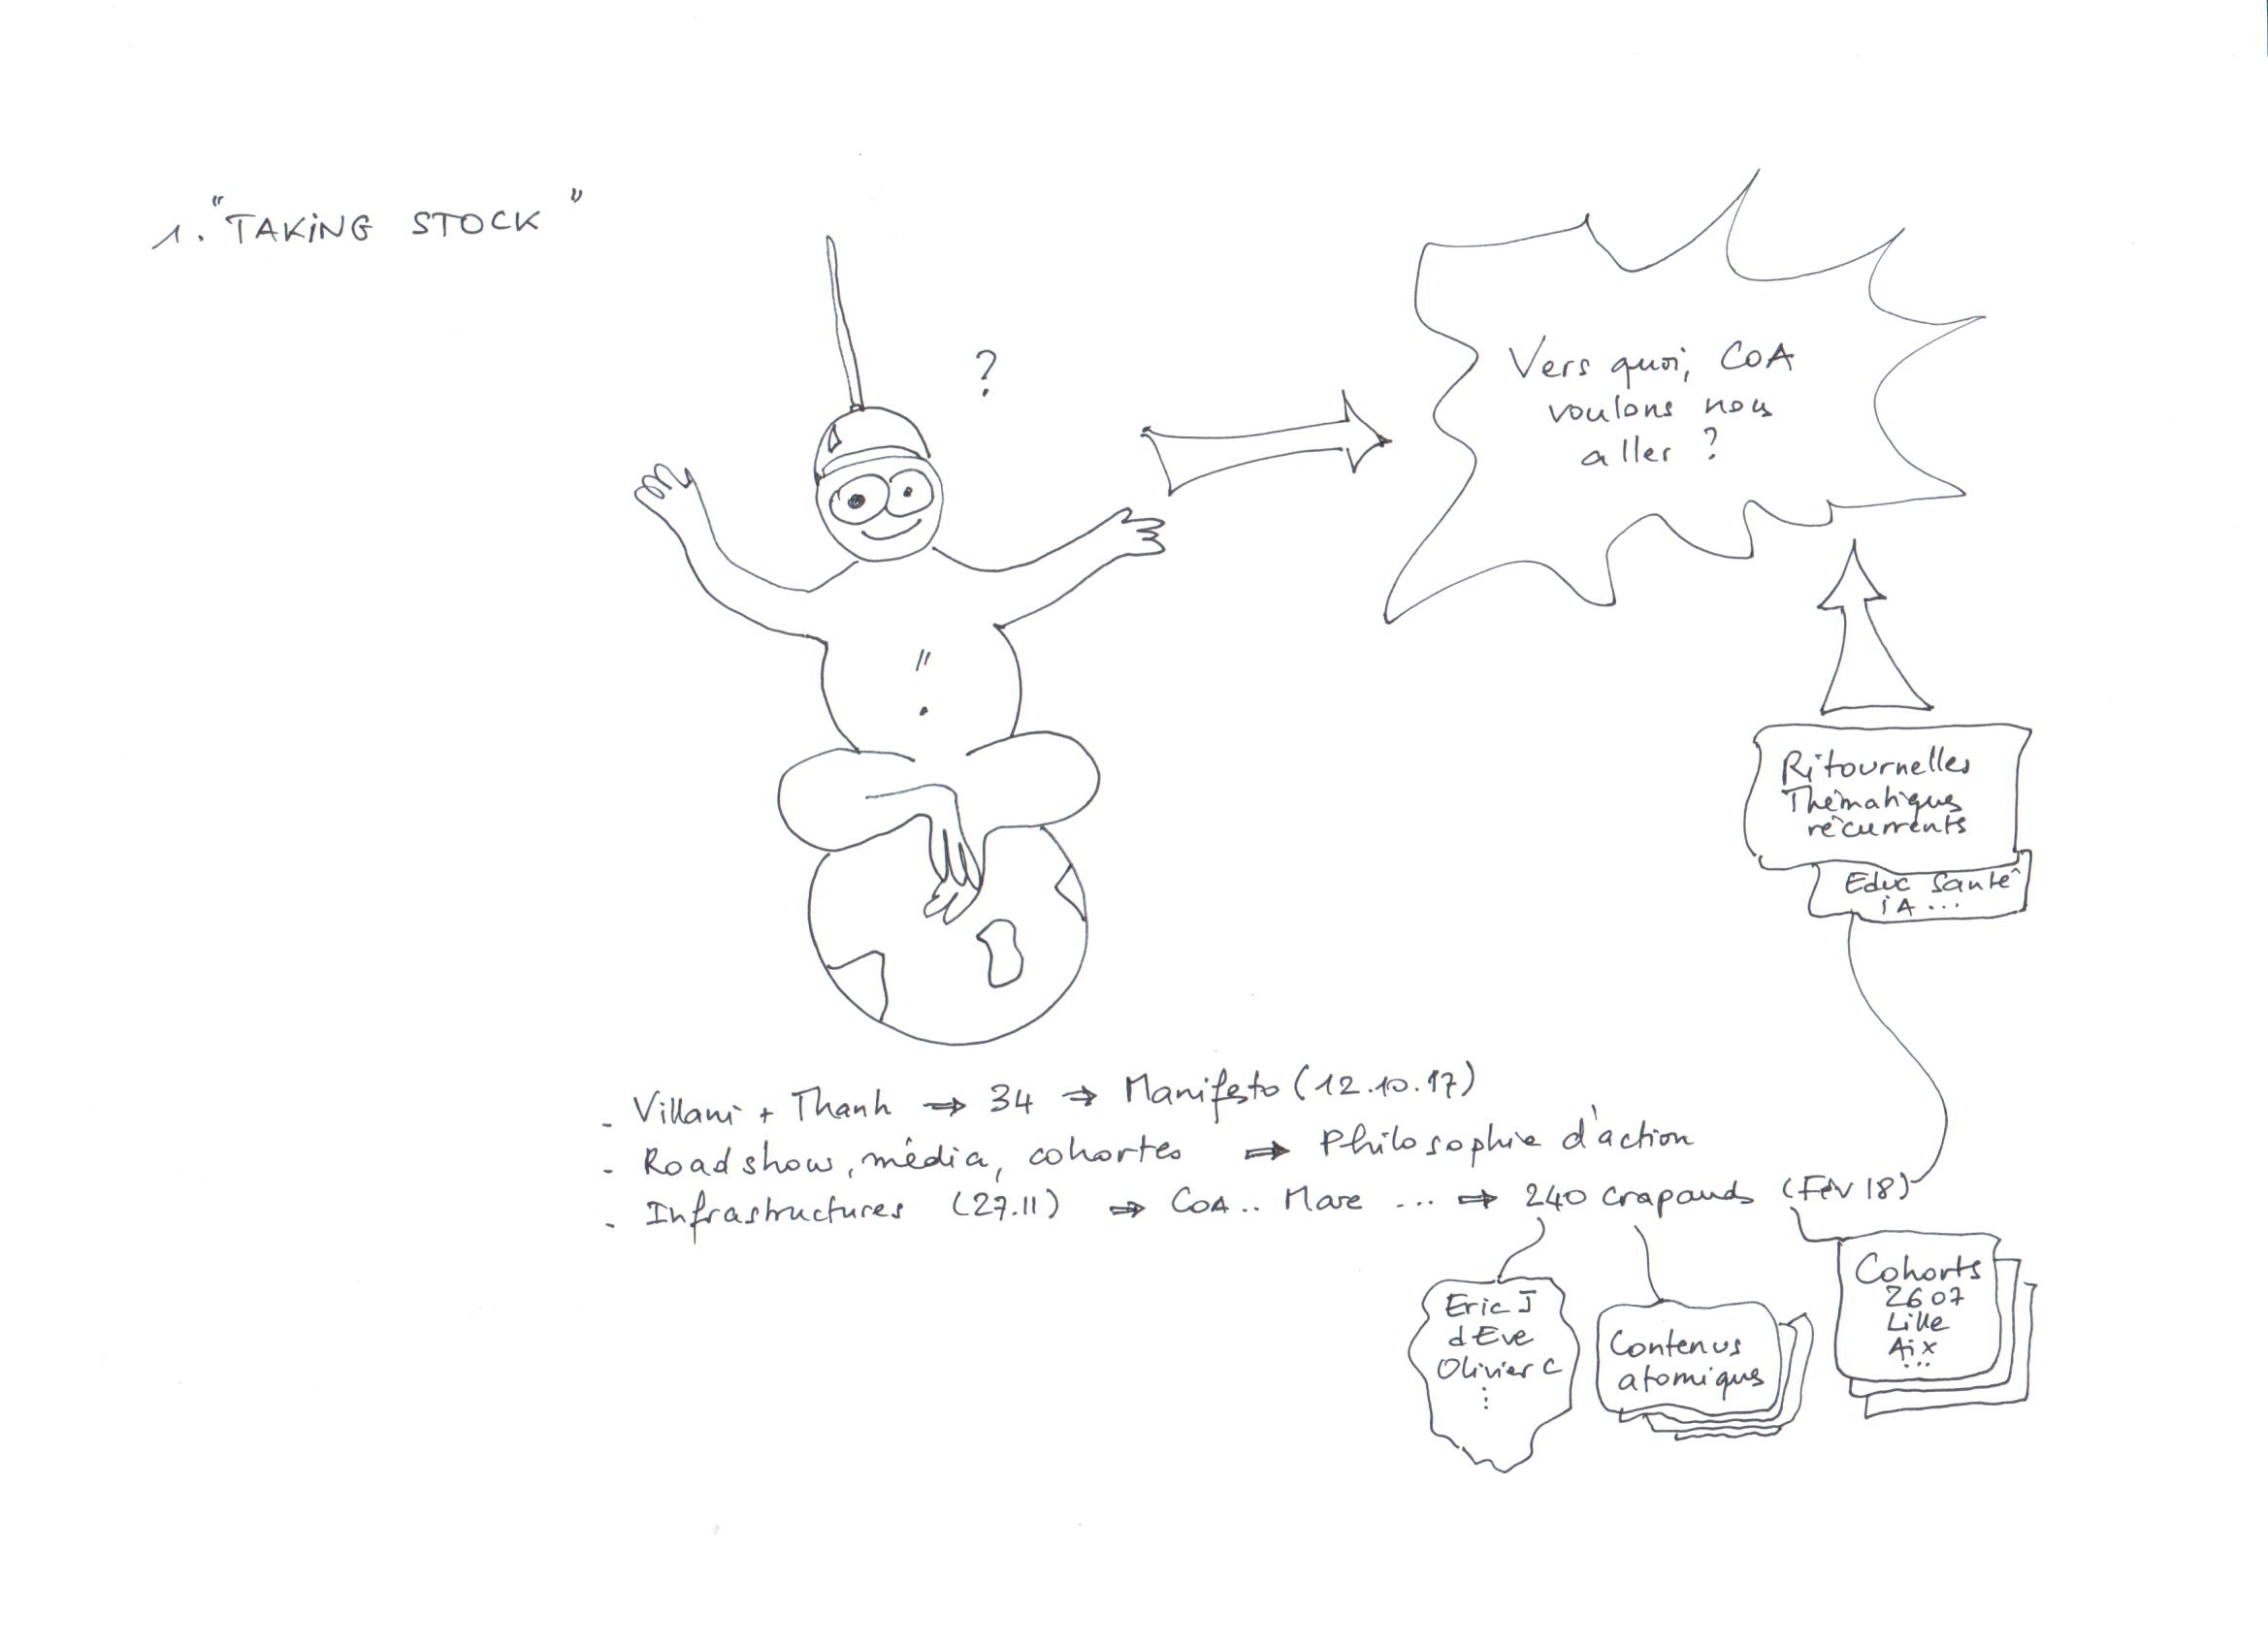 1. "TAKING STOCK"
?
Vers quoi, CoA
voulons nous
aller ?
Ritournelles
Thématiques
récurrents
Educ Santé
iA ...
- Villani + Thanh ⇒ 34 ⇒ Manifesto (12.10.17)
- Roadshow, média, cohortes ⇒ Philosophie d'action
- Infrastructures (27.11) ⇒ CoA.. Mare ... ⇒ 240 crapauds (Fév 18)
Eric J
d Eve
Olivier C
⋮
Contenus
atomiques
Cohorts
2607
Lille
Aix
...